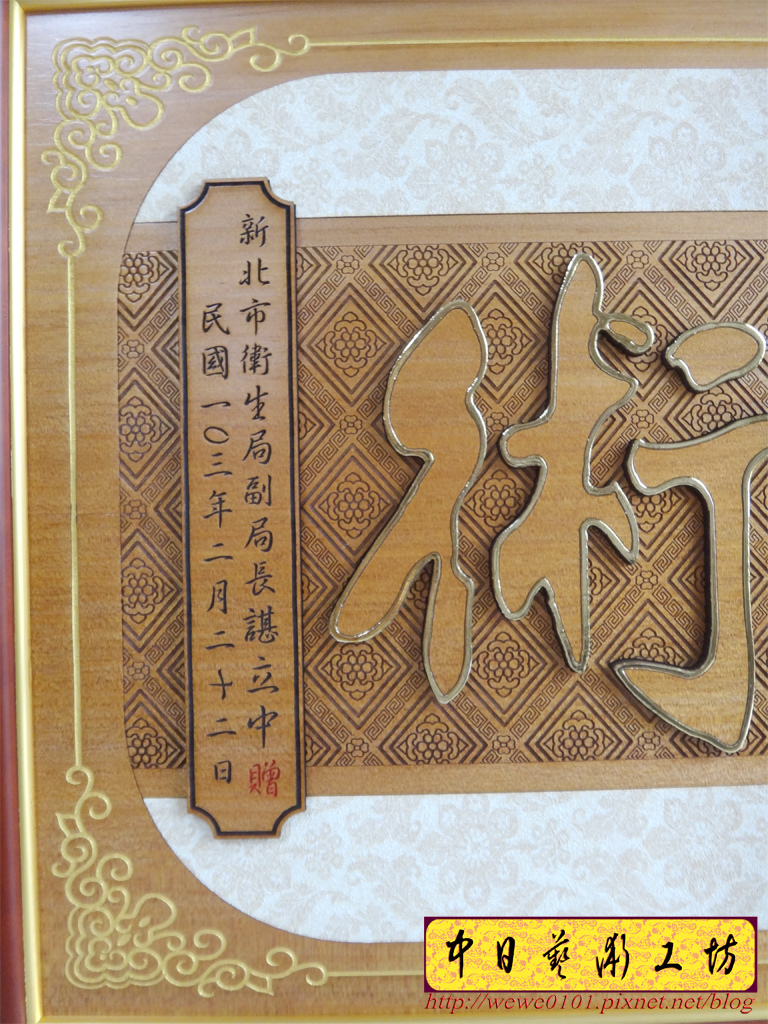 術
新北市衛生局副局長諶立中贈
民國一〇三年二月二十二日
中日藝術工坊
http://wewe0101.pixnet.net/blog